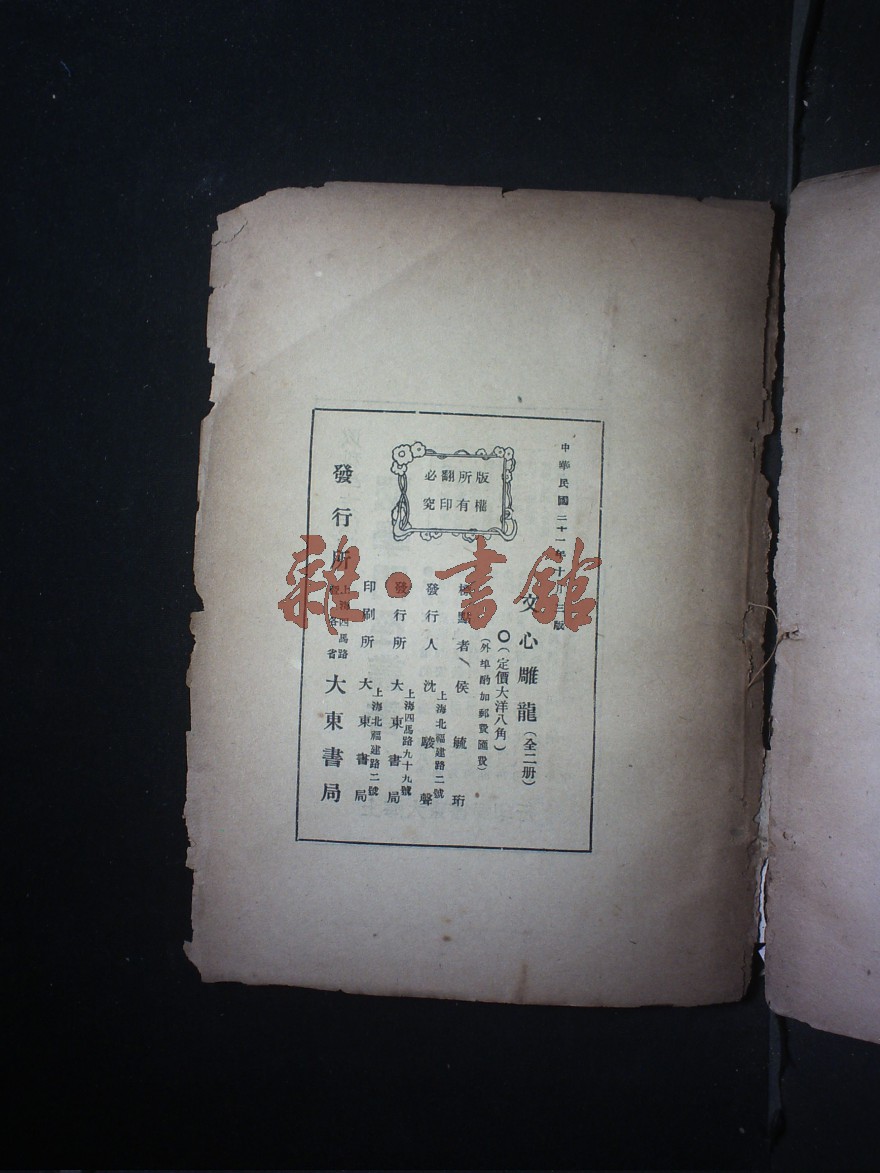 中華民國二十一年十
三版
文心雕龍(全二册)
(定價大洋八角)
(外埠酌加郵費匯費)
版權所有
翻印必究
點者 侯毓珩
發行人 沈駿聲
上海北福建路二號
發行所 大東書局
上海四馬路九十九號
印刷所 大東書局
上海北福建路二號
發行所
上海四馬路
各省
大東書局
雜·書館